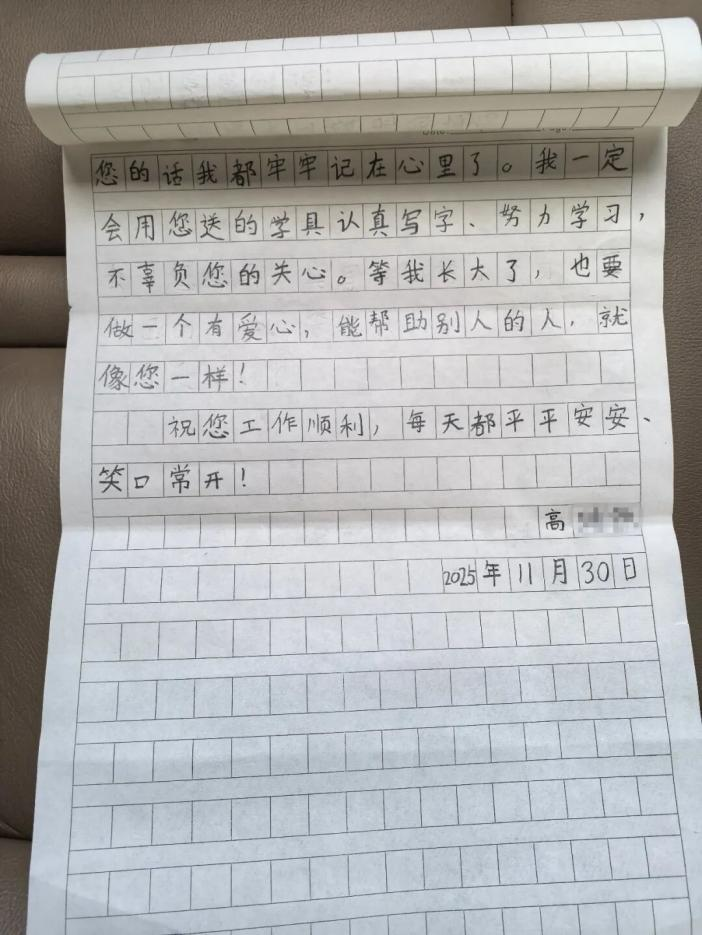 您的话我都牢牢记在心里了。我一定
会用您送的学具认真写字、努力学习，
不辜负您的关心。等我长大了，也要
做一个有爱心，能帮助别人的人，就
像您一样！
祝您工作顺利，每天都平平安安、
笑口常开！
高
2025年11月30日